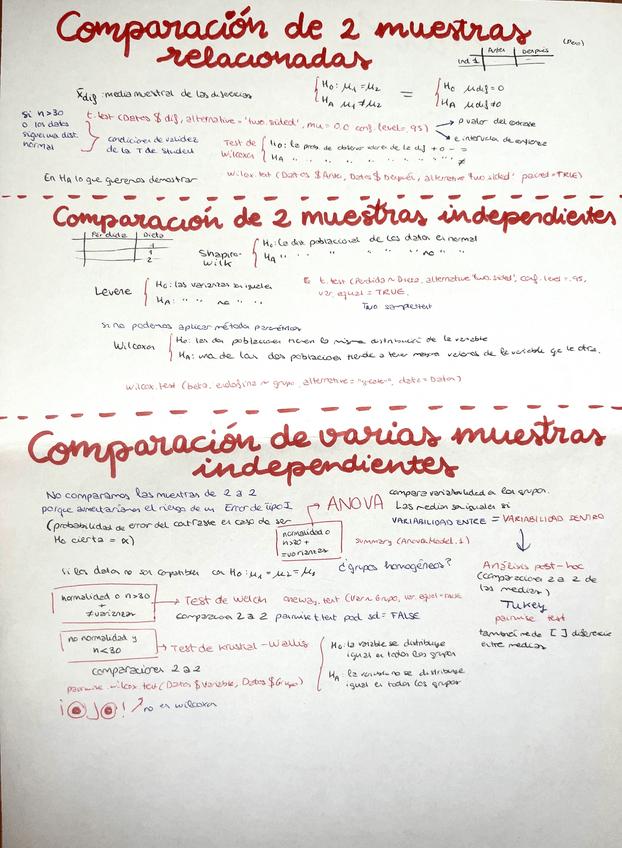 Comparación de 2 muestras
relacionadas
(Peso)
Antes Después
Ind 1
x̄dif : media muestral de las diferencias
H₀: μ₁ = μ₂ = H₀ μdif = 0
HA μ₁ ≠ μ₂ HA μdif ≠ 0
si n>30
o los datos
siguen una dist.
normal
t.test (Datos $ dif, alternative = 'two.sided', mu = 0.0 conf.level = .95)
→ p valor del contraste
→ e intervalos de confianza
condiciones de validez
de la T de Student
Test de
Wilcoxon
H₀: la prob. de obtener valores de la dif + o - =
HA " " " " " " " " ≠
En HA lo que queremos demostrar
wilcox.test (Datos $ Antes, Datos $ Después, alternative 'two.sided' paired = TRUE)
Comparación de 2 muestras independientes
Pérdida Dieta
1
1
2
Shapiro-
Wilk
H₀: La dist. poblacional de los datos es normal
HA " " " " " no "
Levene
H₀: las varianzas son iguales
HA: " " no " "
t.test (Perdida ~ Dieta, alternative 'two.sided', conf.level = .95,
var.equal = TRUE.
Two sample test
si no podemos aplicar método paramétrico
Wilcoxon
H₀: las dos poblaciones tienen la misma distribución de la variable
HA: una de las dos poblaciones tiende a tener mayores valores de la variable que la otra.
wilcox.test (beta.endorfina ~ grupo, alternative = "greater", data = Datos)
Comparación de varias muestras
independientes
No comparamos las muestras de 2 a 2
porque aumentaríamos el riesgo de un Error de tipo I
(probabilidad de error del contraste en caso de ser
H₀ cierta = α)
normalidad o
n>30 +
= varianzas
→ ANOVA
compara variabilidad en los grupos.
Las medias son iguales si
VARIABILIDAD ENTRE = VARIABILIDAD DENTRO
summary (AnovaModel.1)
Si los datos no son compatibles con H₀: μ₁ = μ₂ = μ₃ ¿grupos homogéneos?
Análisis post-hoc
(comparaciones 2 a 2 de
las medias)
Tukey
pairwise test
también mide [ ] diferencia
entre medias
normalidad o n>30
+
≠ varianzas
→ Test de Welch oneway.test (Var ~ Grupo, var.equal = FALSE
comparación 2 a 2 pairwise t.test pool.sd = FALSE
no normalidad y
n<30
→ Test de Kruskal-Wallis
H₀: la variable se distribuye
igual en todos los grupos
HA: la variable no se distribuye
igual en todos los grupos
comparaciones 2 a 2
pairwise.wilcox.test (Datos $ Variable, Datos $ Grupo)
¡OJO! → no es wilcoxon